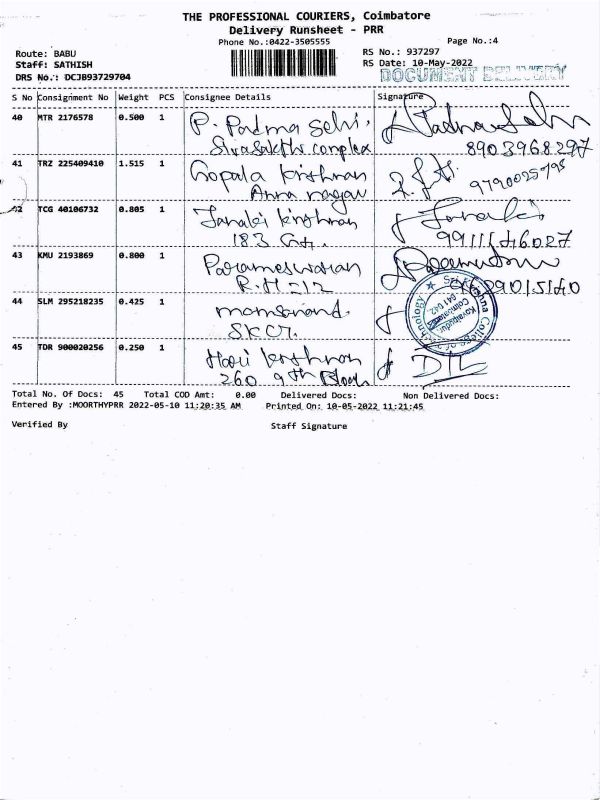 THE PROFESSIONAL COURIERS, Coimbatore
Delivery Runsheet - PRR
Phone No.:0422-3505555
Page No.:4
Route: BABU
Staff: SATHISH
DRS No.: DCJB93729704
RS No.: 937297
RS Date: 10-May-2022
DOCUMENT DELIVERY
S No Consignment No Weight PCS Consignee Details Signature
40 MTR 2176578 0.500 1 P. Padma Selvi,
Sivasakthi complex 8903968297
41 TRZ 225409410 1.515 1 Gopala krishnan
Anna nagar
42 TCG 40106732 0.805 1 Janaki krishnan Janaki
183 9911146027
43 KMU 2193869 0.800 1 Parameswaran
R.H 212
44 SLM 295218235 0.425 1
SKCT.
45 TDR 900020256 0.250 1 Hari krishnan
260 9th Block
Total No. Of Docs: 45 Total COD Amt: 0.00 Delivered Docs: Non Delivered Docs:
Entered By :MOORTHYPRR 2022-05-10 11:20:35 AM Printed On: 10-05-2022 11:21:45
Verified By Staff Signature